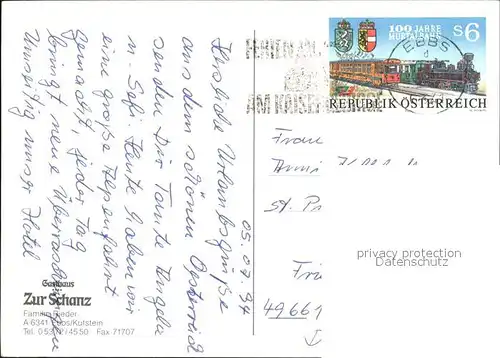 Herzliche Urlaubsgrüße
aus dem schönen Österreich
senden Dir Tante Angela
u. Sefi. Heute haben wir
eine große Alpenfahrt
gemacht, jeder Tag
bringt neue Überraschungen
Umseitig unser Hotel
05.07.94
Gasthaus
Zur Schanz
Familie Rieder
A 6341 Ebbs/Kufstein
Fax 71707
100 JAHRE
MURTALBAHN
S6
REPUBLIK ÖSTERREICH
EBBS
FERIEN AM
AM KAISERGEBIRGE
Frau
St. P
49661
privacy protection
Datenschutz